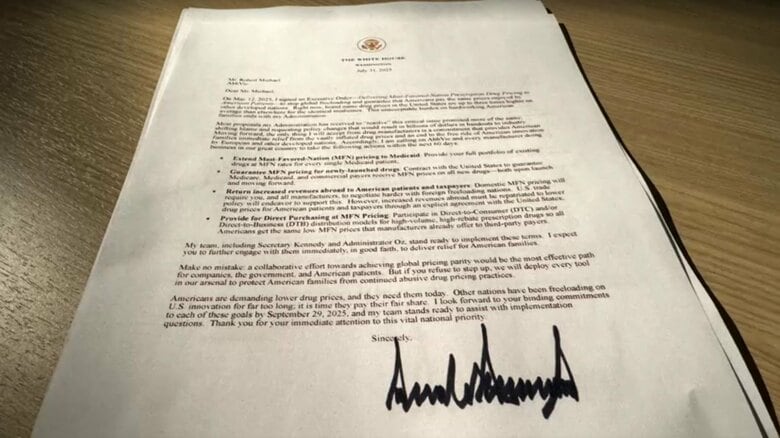 THE WHITE HOUSE
WASHINGTON
July 31, 2025
Mr. Robert Michael
AbbVie
Dear Mr. Michael:
On May 12, 2025, I signed an Executive Order—Delivering Most-Favored-Nation Prescription Drug Pricing to
American Patients—to stop global freeloading and guarantee that Americans pay the same prices enjoyed by
other developed nations. Right now, brand name drug prices in the United States are up to three times higher on
average than elsewhere for the identical medicines. This unacceptable burden on hardworking American
families ends with my Administration.
Most proposals my Administration has received to "resolve" this critical issue promised more of the same:
shifting blame and requesting policy changes that would result in billions of dollars in handouts to industry.
Moving forward, the only thing I will accept from drug manufacturers is a commitment that provides American
families immediate relief from the vastly inflated drug prices and an end to the free ride of American innovation
by European and other developed nations. Accordingly, I am calling on AbbVie and every manufacturer doing
business in our great country to take the following actions within the next 60 days:
• Extend Most-Favored-Nation (MFN) pricing to Medicaid. Provide your full portfolio of existing
drugs at MFN rates for every single Medicaid patient.
• Guarantee MFN pricing for newly-launched drugs. Contract with the United States to guarantee
Medicare, Medicaid, and commercial payers receive MFN prices on all new drugs—both upon launch
and moving forward.
• Return increased revenues abroad to American patients and taxpayers. Domestic MFN pricing will
require you, and all manufacturers, to negotiate harder with foreign freeloading nations. U.S. trade
policy will endeavor to support this. However, increased revenues abroad must be repatriated to lower
drug prices for American patients and taxpayers through an explicit agreement with the United States.
• Provide for Direct Purchasing at MFN Pricing. Participate in Direct-to-Consumer (DTC) and/or
Direct-to-Business (DTB) distribution models for high-volume, high-rebate prescription drugs so all
Americans get the same low MFN prices that manufacturers already offer to third-party payers.
My team, including Secretary Kennedy and Administrator Oz, stand ready to implement these terms. I expect
you to further engage with them immediately, in good faith, to deliver relief for American families.
Make no mistake: a collaborative effort towards achieving global pricing parity would be the most effective path
for companies, the government, and American patients. But if you refuse to step up, we will deploy every tool
in our arsenal to protect American families from continued abusive drug pricing practices.
Americans are demanding lower drug prices, and they need them today. Other nations have been freeloading on
U.S. innovation for far too long; it is time they pay their fair share. I look forward to your binding commitments
to each of these goals by September 29, 2025, and my team stands ready to assist with implementation
questions. Thank you for your immediate attention to this vital national priority.
Sincerely,